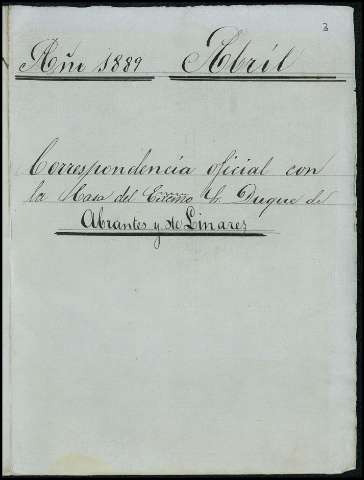 3
Año 1889 Abril
Correspondencia oficial con
la Casa del Excmo Sr. Duque de
Abrantes y de Linares